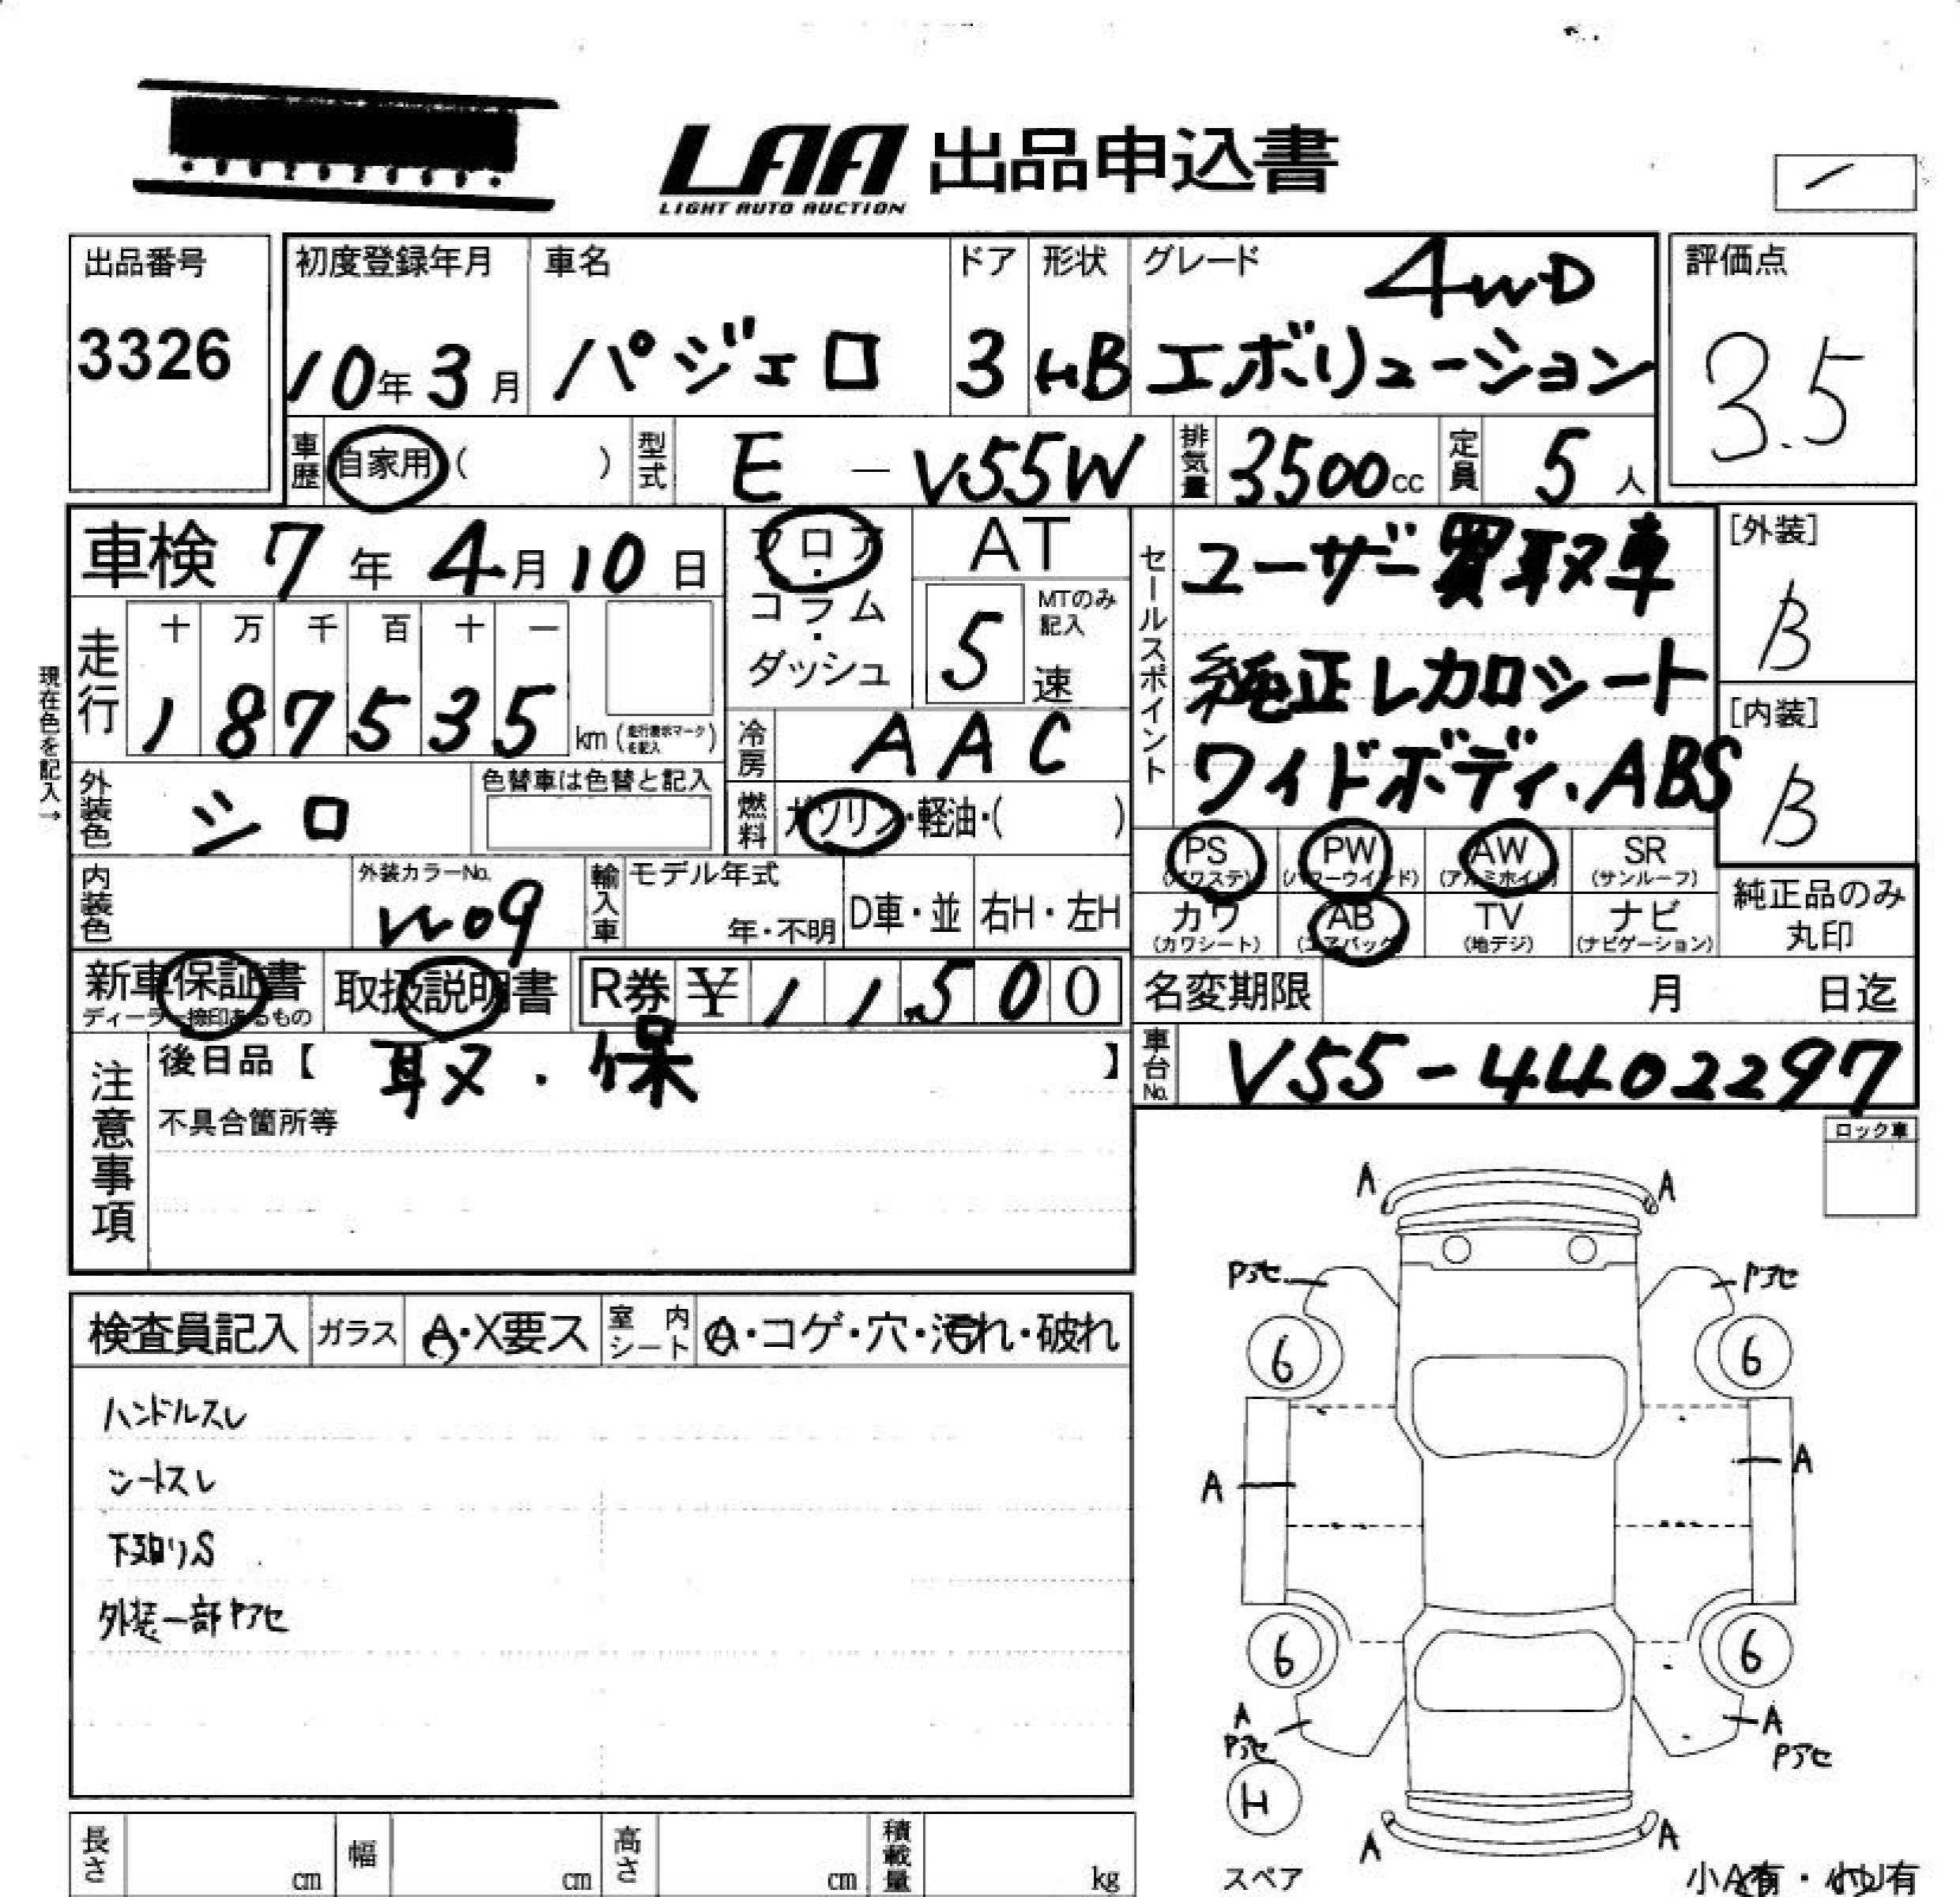 LAA 出品申込書
LIGHT AUTO AUCTION
出品番号 初度登録年月 車名 ドア 形状 グレード 4WD 評価点
3326 10年3月 パジェロ 3 HB エボリューション 3.5
車歴 自家用( ) 型式 E - V55W 排気量 3500cc 定員 5人
車検 7年4月10日 フロア・コラム・ダッシュ AT
5速 MTのみ記入
セールスポイント
ユーザー買取車
純正レカロシート
ワイドボディ、ABS
[外装]
B
[内装]
B
現在色を記入→
走行 十 万 千 百 十 一
187535 km (走行表示マークを記入)
冷房 AAC
外装色 シロ 色替車は色替と記入
燃料 ガソリン・軽油・( )
PS PW AW SR
(パワステ) (パワーウインド) (アルミホイル) (サンルーフ)
カワ AB TV ナビ
(カワシート) (エアバック) (地デジ) (ナビゲーション)
純正品のみ
丸印
内装色 外装カラーNo. W09 輸入車 モデル年式 年・不明 D車・並 右H・左H
新車保証書 取扱説明書 R券 ¥11,500
ディーラー捺印あるもの
名変期限 月 日迄
車台No. V55-4402297
注意事項
後日品【 取・保 】
不具合箇所等
ロック車
検査員記入 ガラス A・X要ス 室内シート A・コゲ・穴・汚れ・破れ
ハンドルスレ
シートスレ
下廻りS
外装一部Pアセ
A A
Pアセ Pアセ
6 6
A A
6 6
A A
Pアセ Pアセ
H
A A
スペア 小A有・小U有
長さ cm 幅 cm 高さ cm 積載量 kg